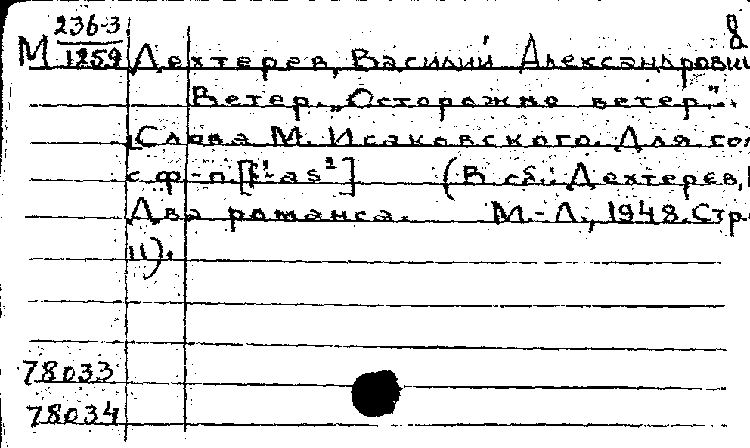 8
М 236-3
1259 Дехтерев, Василий Александрови
Ветер. „Осторожно ветер"..
Слова М. Исаковского. Для гол
с ф-п. [f¹-as²] (В сб.: Дехтерев,
Два романса. М.-Л., 1948. Стр.
11).
78033
78034